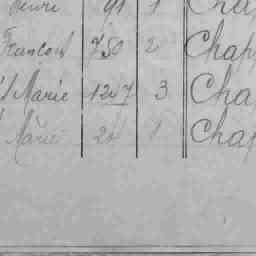 Henri 91 1 Cha
François 750 2 Chap
Marie 1247 3 Cha
Marie 24 1 Chap